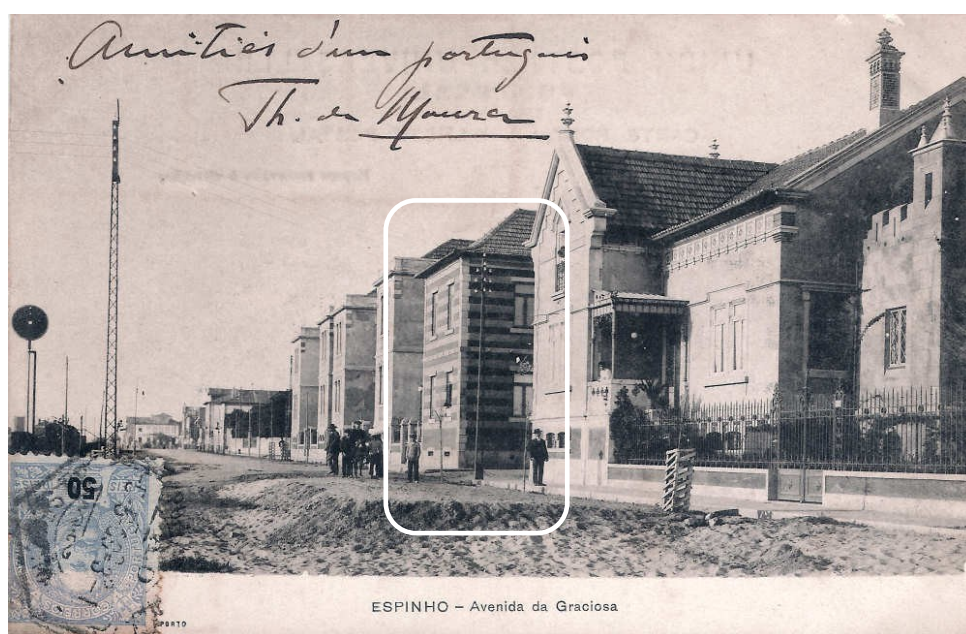 Amitiés d'un portugais
Th. de Moura
50
ESPINHO – Avenida da Graciosa
PORTO